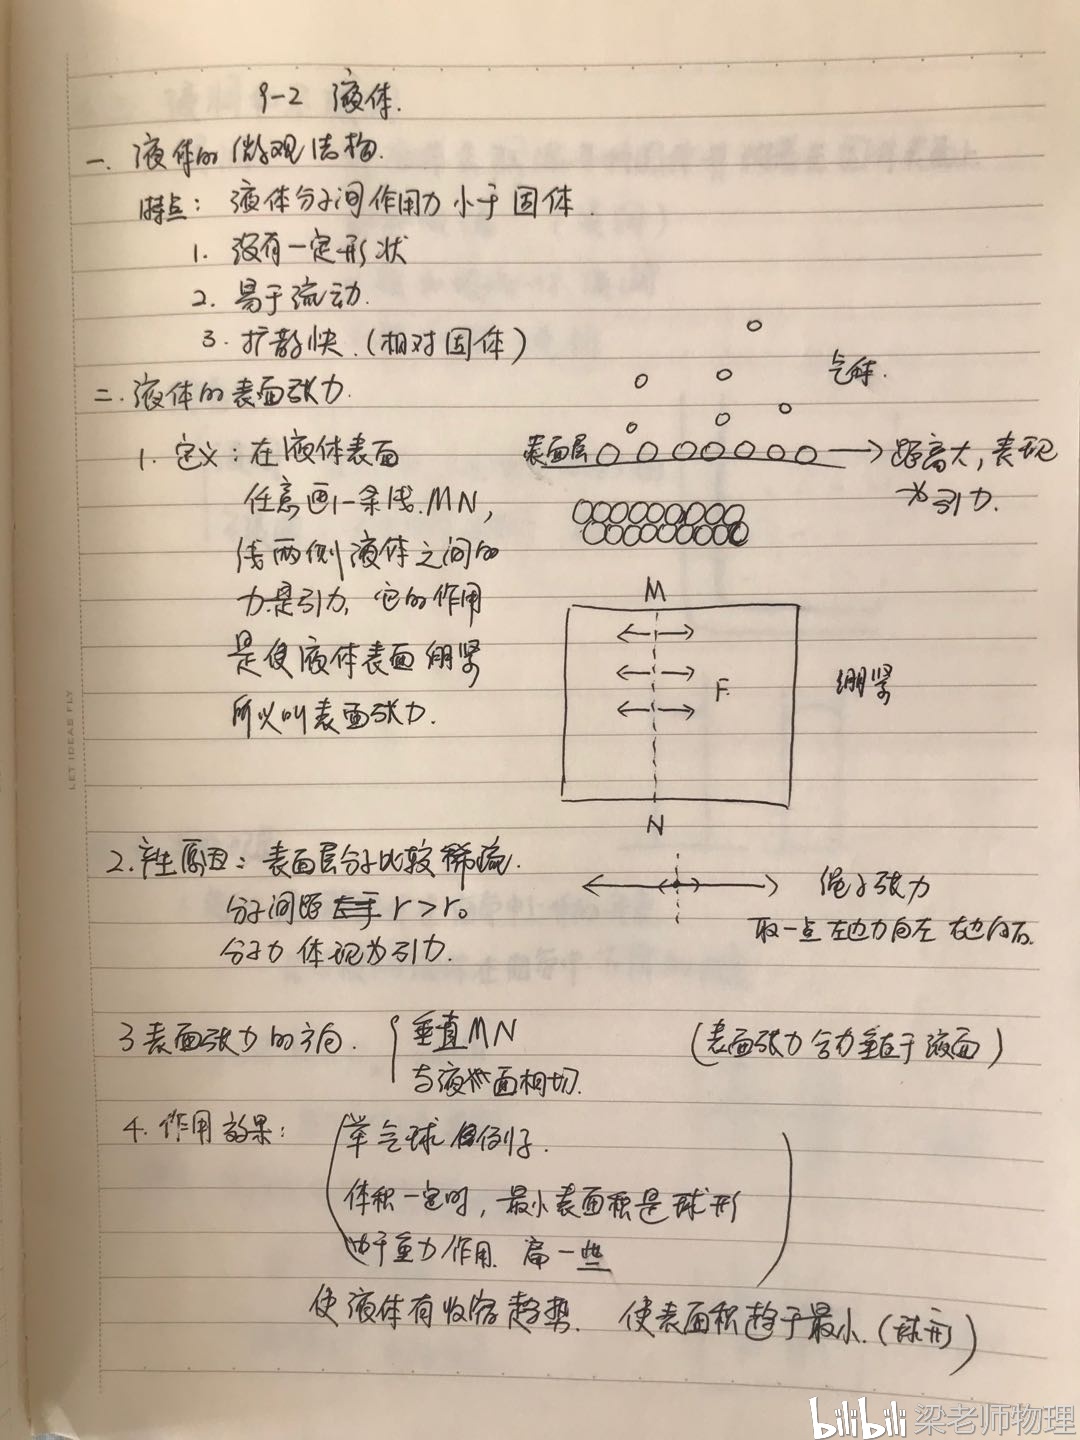 9-2 液体.
一. 液体的微观结构.
特点: 液体分子间作用力小于固体.
1. 没有一定形状
2. 易于流动.
3. 扩散快.(相对固体)
二. 液体的表面张力.
气体.
1. 定义: 在液体表面
任意画一条线.MN,
线两侧液体之间的
力是引力, 它的作用
是使液体表面绷紧
所以叫表面张力.
表面层 → 距离大, 表现
为引力.
M
F.
绷紧
N
2. 产生原因: 表面层分子比较稀疏.
分子间距 r>r₀
分子力体现为引力.
绳子张力
取一点 左边力向左 右边向右.
3 表面张力的方向. { 垂直MN
与液面相切.
(表面张力合力垂直于液面)
4. 作用效果:
(举气球例子.
体积一定时, 最小表面积是球形
由于重力作用. 扁一些)
使液体有收缩趋势. 使表面积趋于最小.(球形)
LET IDEAS FLY
bilibili 梁老师物理